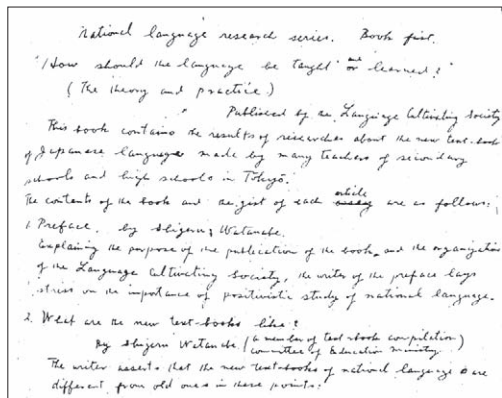 National language research series. Book first.
"How should the language be taught and or learned?"
(The theory and practice.)
Published by the Language Cultivating Society
This book contains the results of researches about the new text-book
of Japanese language made by many teachers of secondary
schools and high schools in Tōkyō.
The contents of the book and the gist of each article are as follows:
1. Preface. by Shigeru Watanabe.
Explaining the purpose of the publication of the book, and the organization
of the Language Cultivating Society, the writer of the preface lays
stress on the importance of positivistic study of national language.
2. What are the new text-books like?
By Shigeru Watanabe (a member of text-book compilation
committee of Education ministry)
The writer asserts that the new text-books of national language are
different from old ones in these points: